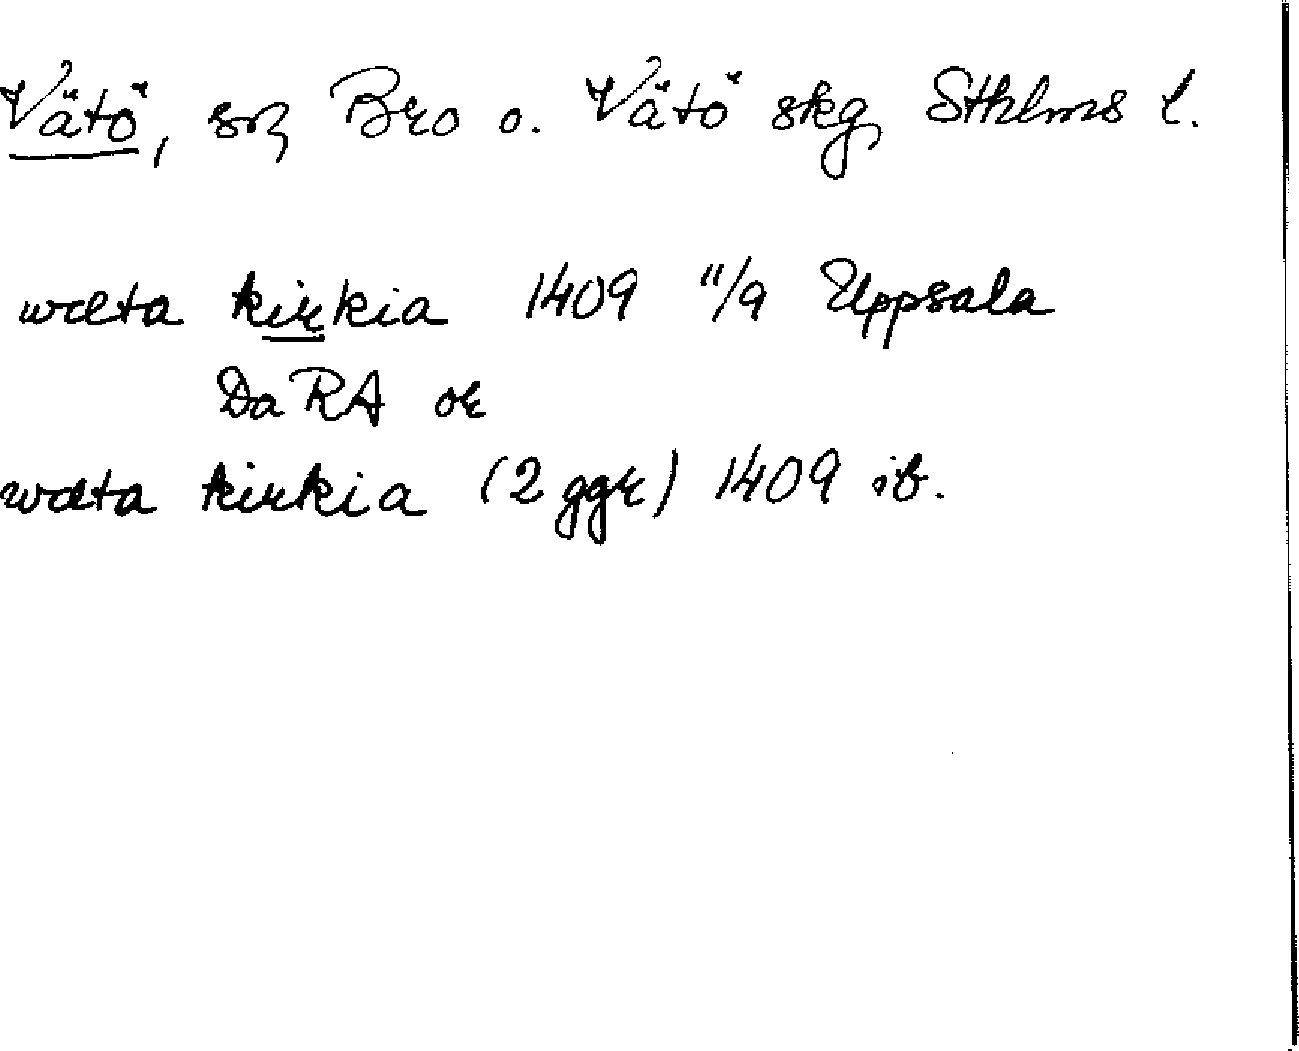 Vätö, sn, Bro o. Vätö skg, Sthlms l.
wæta kirkia 1409 11/9 Uppsala
DaRA or
wæta kirkia (2 ggr) 1409 ib.